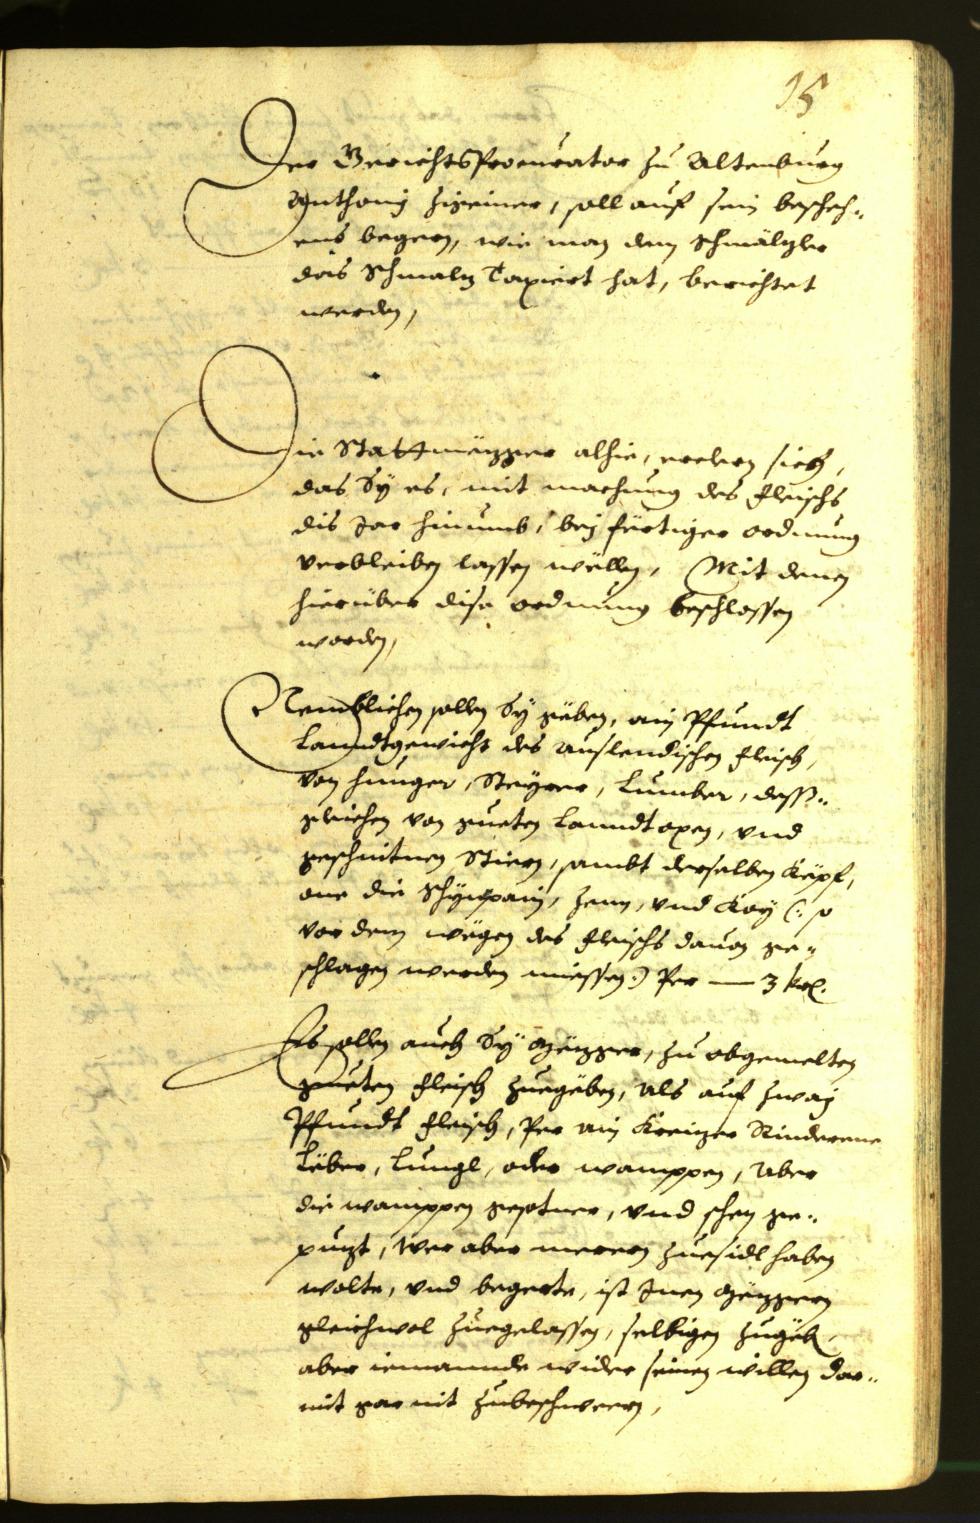 15
Der Gerichts Procurator zu Altenburg
Anthonj Zigeiner, soll auf sein bescheh-,
ens begern, wie man dem Schmälzler
das Schmalz Taxiert hat, berichtet
werden,
Die Stattmëzger alhie, erclern sich,
das Sÿ es, mit machung des fleischs
dis Jar hinumb, bej fertiger ordnung
verbleiben lassen wëllen, Mit denen
hierüber dise ordnung beschlossen
worden,
Nemblichen sollen Sÿ gëben, ain Pfundt
Lanndtgewicht des auslendischen fleisch,
von hunger, Steyrer, Lumber, dess-,
gleichen von gueten Lanndt oxen, vnd
geschnitnen Stiern, sambt derselben Këpf,
one die Schÿnpain, Zenn, vnd Koÿ (: so
vor dem wëgen des fleischs dauon ge-,
schlagen werden miessen :) Per — 3 kr.
Es sollen auch Sÿ Mëzger, zu obgemelten
gueten fleisch zuegëben, Als auf zwaj
Pfundt fleisch, Per ain Kreizer Rinderene
Lëber, Lungl, oder wamppen, Aber
die wamppen gesotner, vnd schen ge-,
puzt, Wer aber merern zuesidl haben
wolte, vnd begerte, ist Jnen Mëzgern
gleichwol zuegelassen, selbigen zugëben,
aber iemannde wider seinen willen dar-,
mit gar nit zubeschweern,